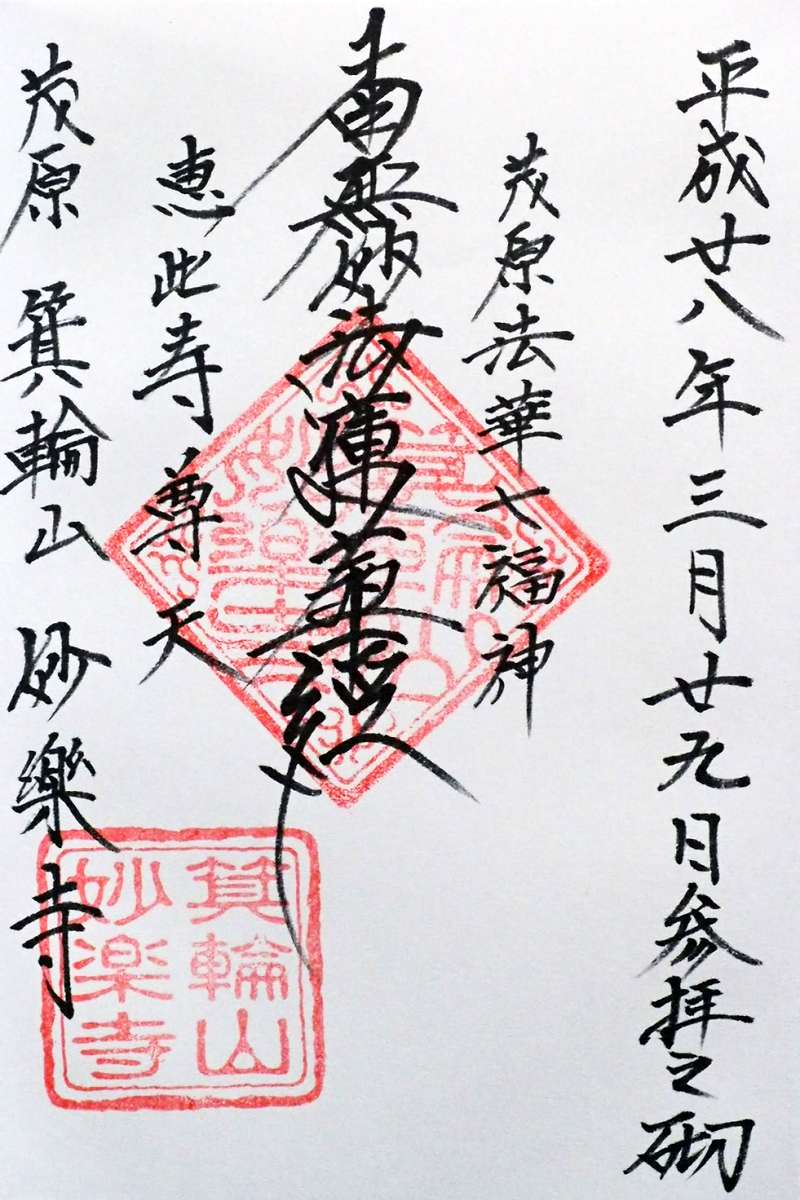 平成廿八年三月廿九日参拝之砌
茂原法華七福神
南無妙法蓮華經
恵比寿尊天
茂原 箕輪山 妙樂寺
箕輪山
妙楽寺